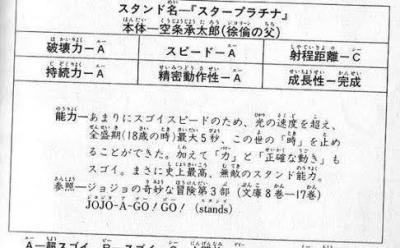 スタンド名―『スタープラチナ』
本体―空条承太郎(徐倫の父)
破壊力―A
スピード―A
射程距離―C
持続力―A
精密動作性―A
成長性―完成
能力―あまりにスゴイスピードのため、光の速度を超え、
全盛期(18歳の時)最大5秒、この世の「時」を止め
ることができた。加えて「力」と「正確な動き」も
スゴイ。まさに史上最高、無敵のスタンド能力。
参照―ジョジョの奇妙な冒険第3部(文庫8巻―17巻)
JOJO-A-GO!GO!(stands)
A―超スゴイ B―スゴイ